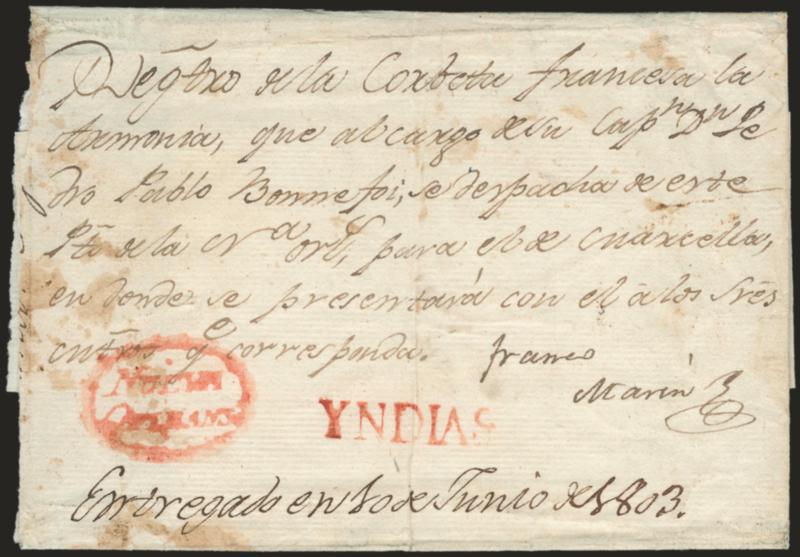 Regtro de la Corbeta francesa la
Armonia, que al cargo de su Capn Dn Pe
dro Pablo Bonnefoi, se despacha de este
Pto de la Na Orls para el de Marcella,
en donde se presentará con el á los Sres
Mtros qe corresponda. franco
Marin
NUEVA
ORLEANS
YNDIAS
Entregado en 10 de Junio de 1803.